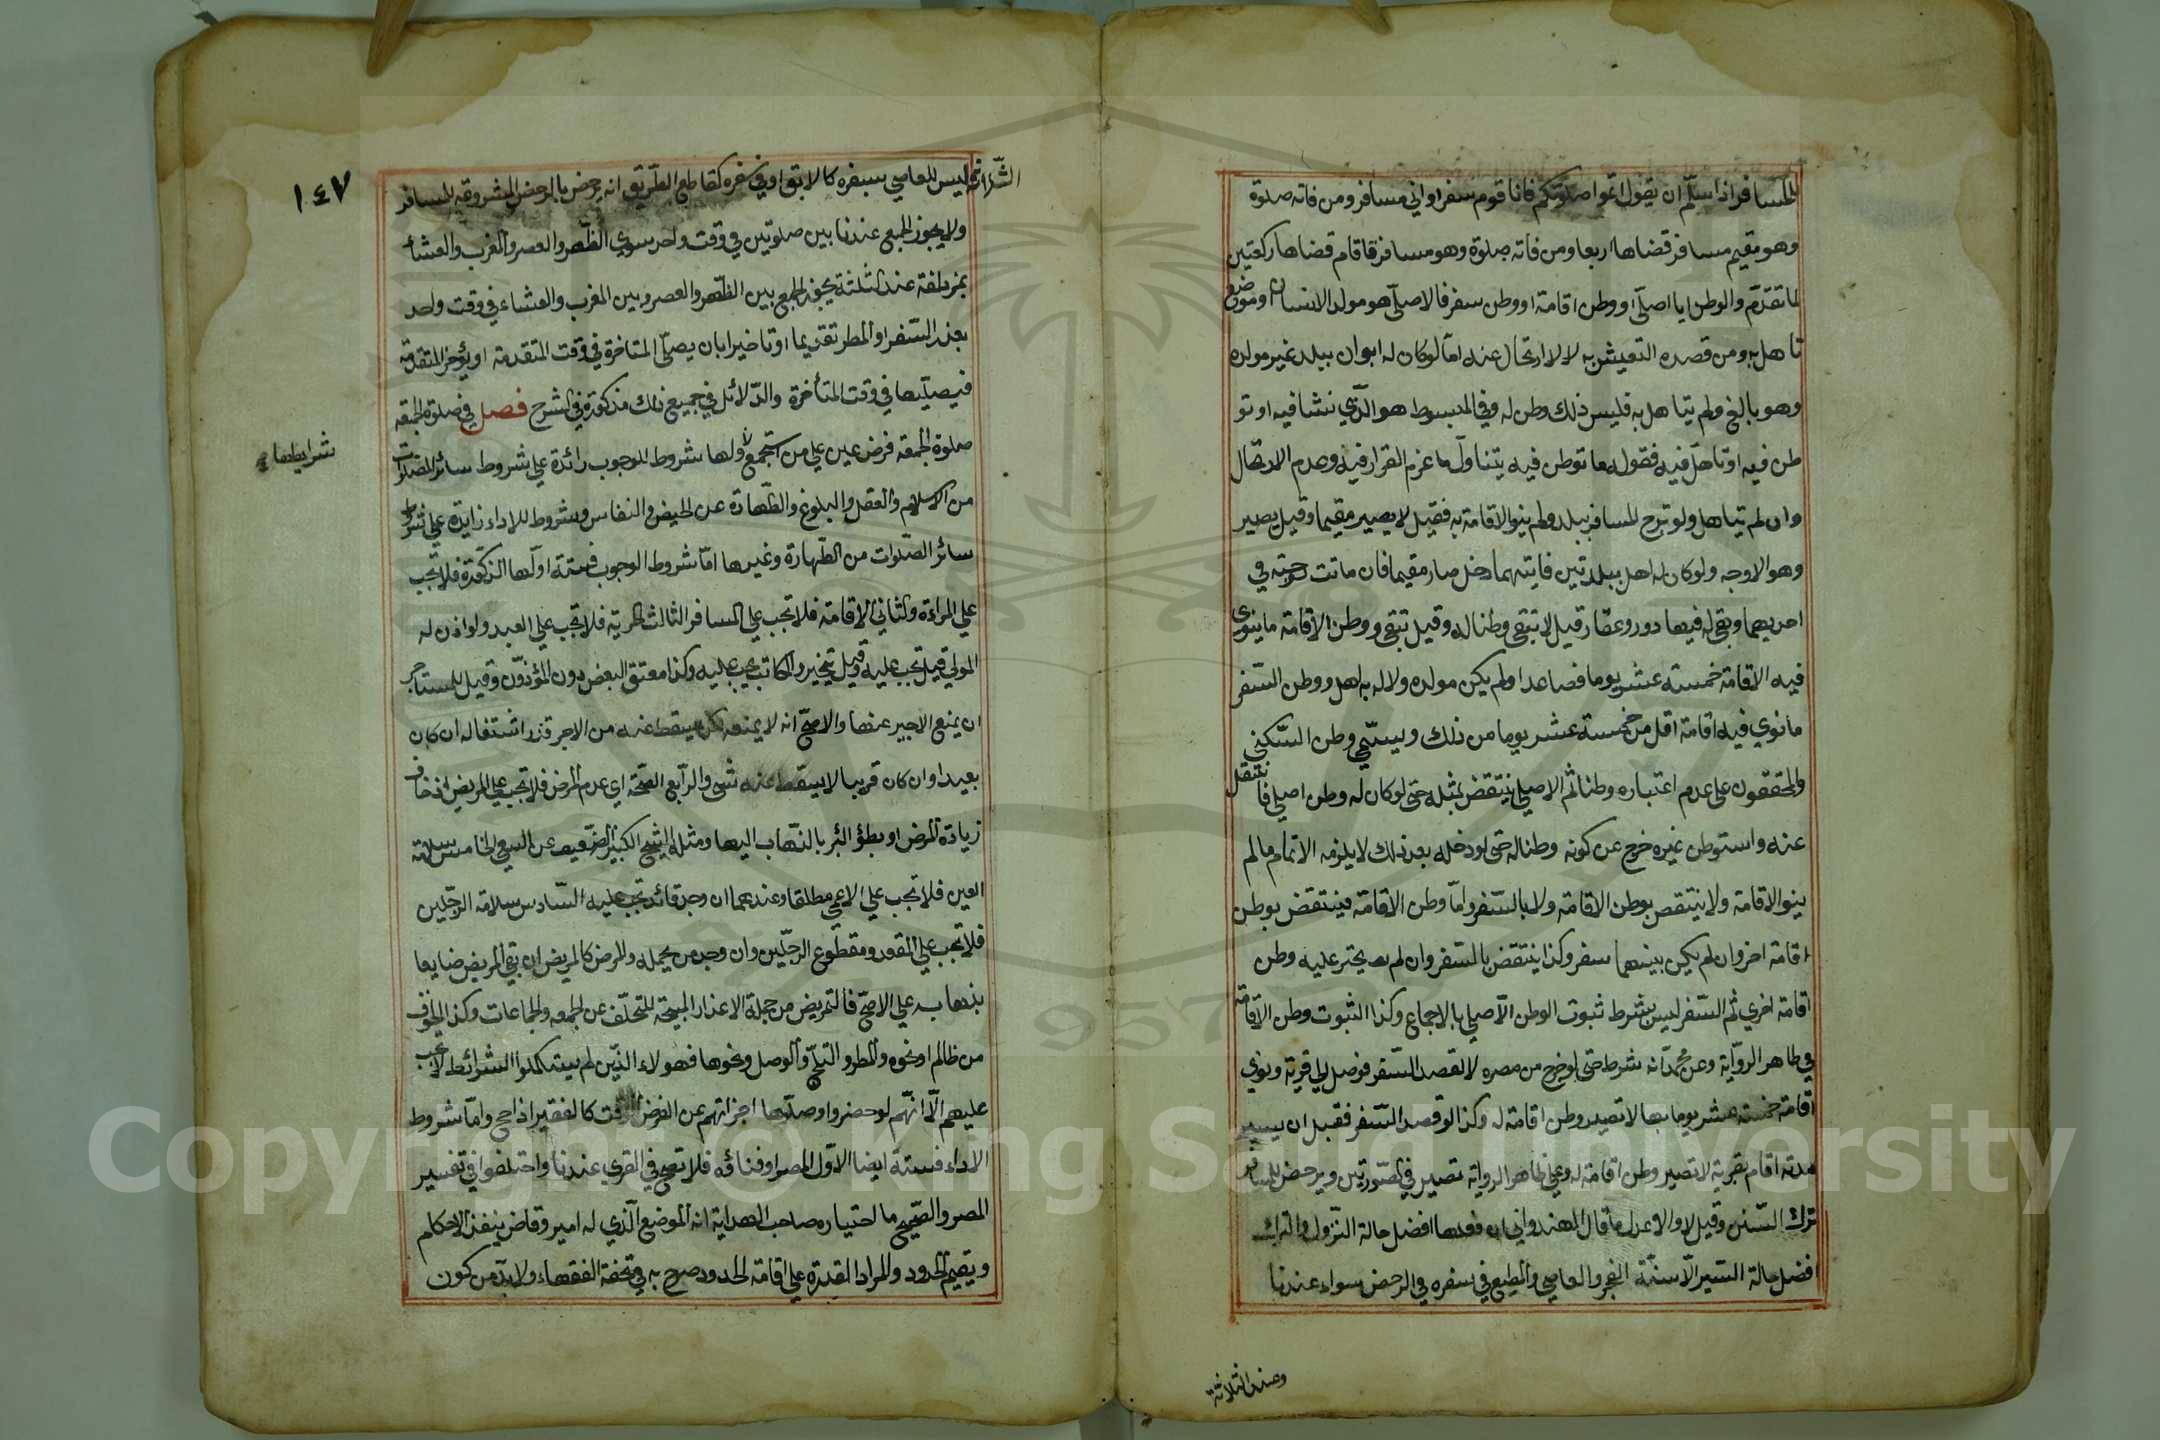 للمسافر اذا سلّم ان يقول اتموا صلوتكم فانا قوم سفر او اني مسافر ومن فاته صلوة
وهو مقيم مسافر قضاها اربعا ومن فاته صلوة وهو مسافر فاقام قضاها ركعتين
لما تقدّم والوطن اما اصلّى او وطن اقامة او وطن سفر فالاصلّى هو مولد الانسان او موضع
تاهل به ومن قصده التعيش به لا الارتحال عنه امّا لو كان له ابوان ببلد غير مولده
وهو بالغ ولم يتاهل به فليس ذلك وطن له وفي المبسوط هو الذّي نشا فيه او تو
طن فيه او تاهّل فيه فقوله ما توطن فيه يتناول ما عزم القرار فيه وعدم الارتحال
وان لم يتاهل ولو تزوج المسافر ببلد ولم ينو الاقامة به فقيل لا يصير مقيما وقيل يصير
وهو الاوجه ولو كان له اهل ببلدتين فايتهما دخل صار مقيما فان ماتت زوجته في
احديهما وبقي له فيها دور وعقار قيل لا تبقى وطنا له وقيل تبقى ووطن الاقامة ما ينوى
فيه الاقامة خمسة عشر يوما فصاعدا ولم يكن مولده ولا له به اهل ووطن السّفر
ما نوي فيه اقامة اقل من خمسة عشر يوما من ذلك ويسمّى وطن السّكنى
والمحققون على عدم اعتباره وطنا ثم الاصلي ينتقض بمثله حتى لو كان له وطن اصلي فانتقل
عنه واستوطن غيره خرج عن كونه وطنا له حتى لو دخله بعد ذلك لا يلزمه الاتمام ما لم
ينو الاقامة ولا ينتقض بوطن الاقامة ولا بالسّفر وامّا وطن الاقامة فينتقض بوطن
اقامة اخر وان لم يكن بينهما سفر وكذا ينتقض بالسّفر وان لم عليه وطن
اقامة اخري ثم السّفر ليس بشرط ثبوت الوطن الاّصلي بالاجماع وكذا الثبوت وطن الاقامة
في ظاهر الروّاية وعن محمّد انه شرط حتى لو خرج من مصره لا لقصد السّفر فوصل الى قرية ونوي
اقامة خمسة عشر يوما بها لا تصير وطن اقامة له وكذا لو قصد السّفر فقبل ان يسير
مدته اقام بقرية لا تصير وطن اقامة له وعلى ظاهر الرواية تصير في الصّورتين ويرخص للمسافر
ترك السّنن وقيل لا والاعدل ما قال الهندواني ان فعلها افضل حالة النّزول والترك
افضل حالة السّير الاّ سنّة الفجر والعاصي والمطيع في سفره في الرخص سواء عندنا
وعند الثلاثة
١٤٧
ليس للعاصي بسفره كالابق او في سفره كقاطع الطّريق انه يرخص بالرخص المشروعة للمسافر
ولا يجوز الجمع عندنا بين صلوتين في وقت واحد سوي الظّهر والعصر والمغرب والعشأ
بمزدلفة عند الثلثة يجوز الجمع بين الظّهر والعصر وبين المغرب والعشاء في وقت واحد
بعذر السّفر او المطر تقديما او تاخيرا بان يصلّى المتاخرة في وقت المتقدمة او يؤخر المتقدمة
فيصلّيها في وقت المتأخرة والدّلائل في جميع ذلك مذكورة في الشرح فصل في صلوة الجمعة
صلوة الجمعة فرض عين على من استجمع ولها شروط للوجوب زائدة على شروط سائر الصّلوات
شرايطها
من الاسلام والعقل والبلوغ والطّهارة عن الحيض والنفاس وشروط للاداء زايدة على شروط
سائر الصّلوات من الطّهارة وغيرها امّا شروط الوجوب فستة اولّها الذّكورة فلا تجب
على المراءة والثاني الاقامة فلا تجب على المسافر الثالث الحرية فلا تجب على العبد ولو اذن له
المولى قيل تجب عليه وقيل يتخير والمكاتب يجب عليه وكذا معتق البعض دون المؤذّون وقيل للمستاجر
ان يمنع الاجير عنها والاصحّ انه لا يمنعه لكن يسقط عنه من الاجر قدر اشتغاله ان كان
بعيدا وان كان قريبا لا يسقط عنه شئ والرّابع الصّحة اي عدم المرض فلا تجب على المريض اذ خاف
زيادة المرض او بطؤ البرء بالذّهاب اليها ومثله الشيخ الكبير الضّعيف عن السعي الخامس سلامة
العين فلا تجب على الاعمى مطلقا وعندهما ان وجد قائد تجب عليه السّادس سلامة الرجّلين
فلا تجب على المقعد ومقطوع الرجّلين وان وجد من يحمله والممرض كالمريض ان بقي المريض ضايعا
بذهابه على الاصحّ فالتمريض من جملة الاعذار المبيحة للتخلّف عن الجمعه والجماعات وكذا الخوف
من ظالم او نحوه والمطر والثلج والوحل ونحوها فهولاء الذّين لم يستكملوا الشرائط لا تجب
عليهم الاّ انّهم لو حضروا وصلّوها اجزاتهم عن الفرض الوقت كالفقير اذا حج وامّا شروط
الاداء فستة ايضا الاّول المصر او فناؤه فلا تصح في القري عندنا واختلفوا في تفسير
المصر والصّحيح ما اختياره صاحب الهداية انه الموضع الذّي له امير وقاض ينفذ الاحكام
ويقيم الحدود والمراد القدرة على اقامة الحدود صرح به في تحفة الفقهاء ولا بدّ من كون
Copyright © King Saud University
1957